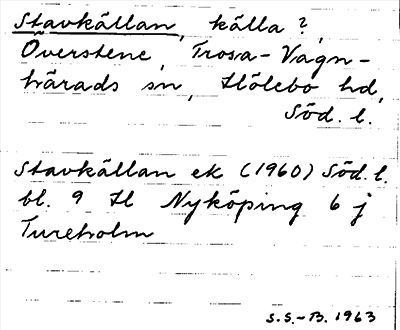 Stavkällan, källa?,
Överstene, Trosa-Vagn-
härads sn, Hölebo hd,
Söd. l.
Stavkällan ek (1960) Söd. l.
bl. 9 H Nyköping 6 j
Tureholm
S.S.-B. 1963